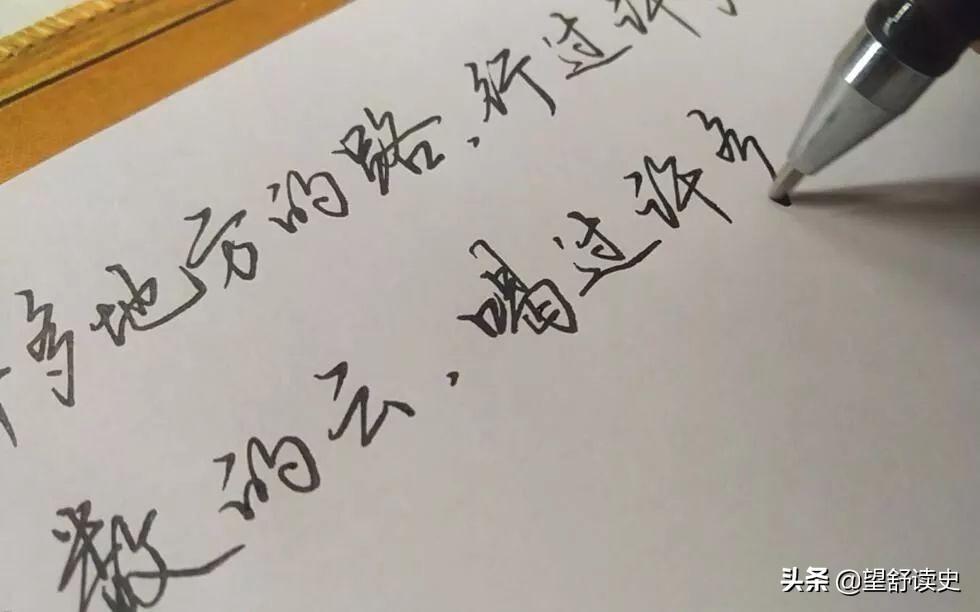 多地方的路.行过许
数的云.喝过许多
头条 @望舒读史